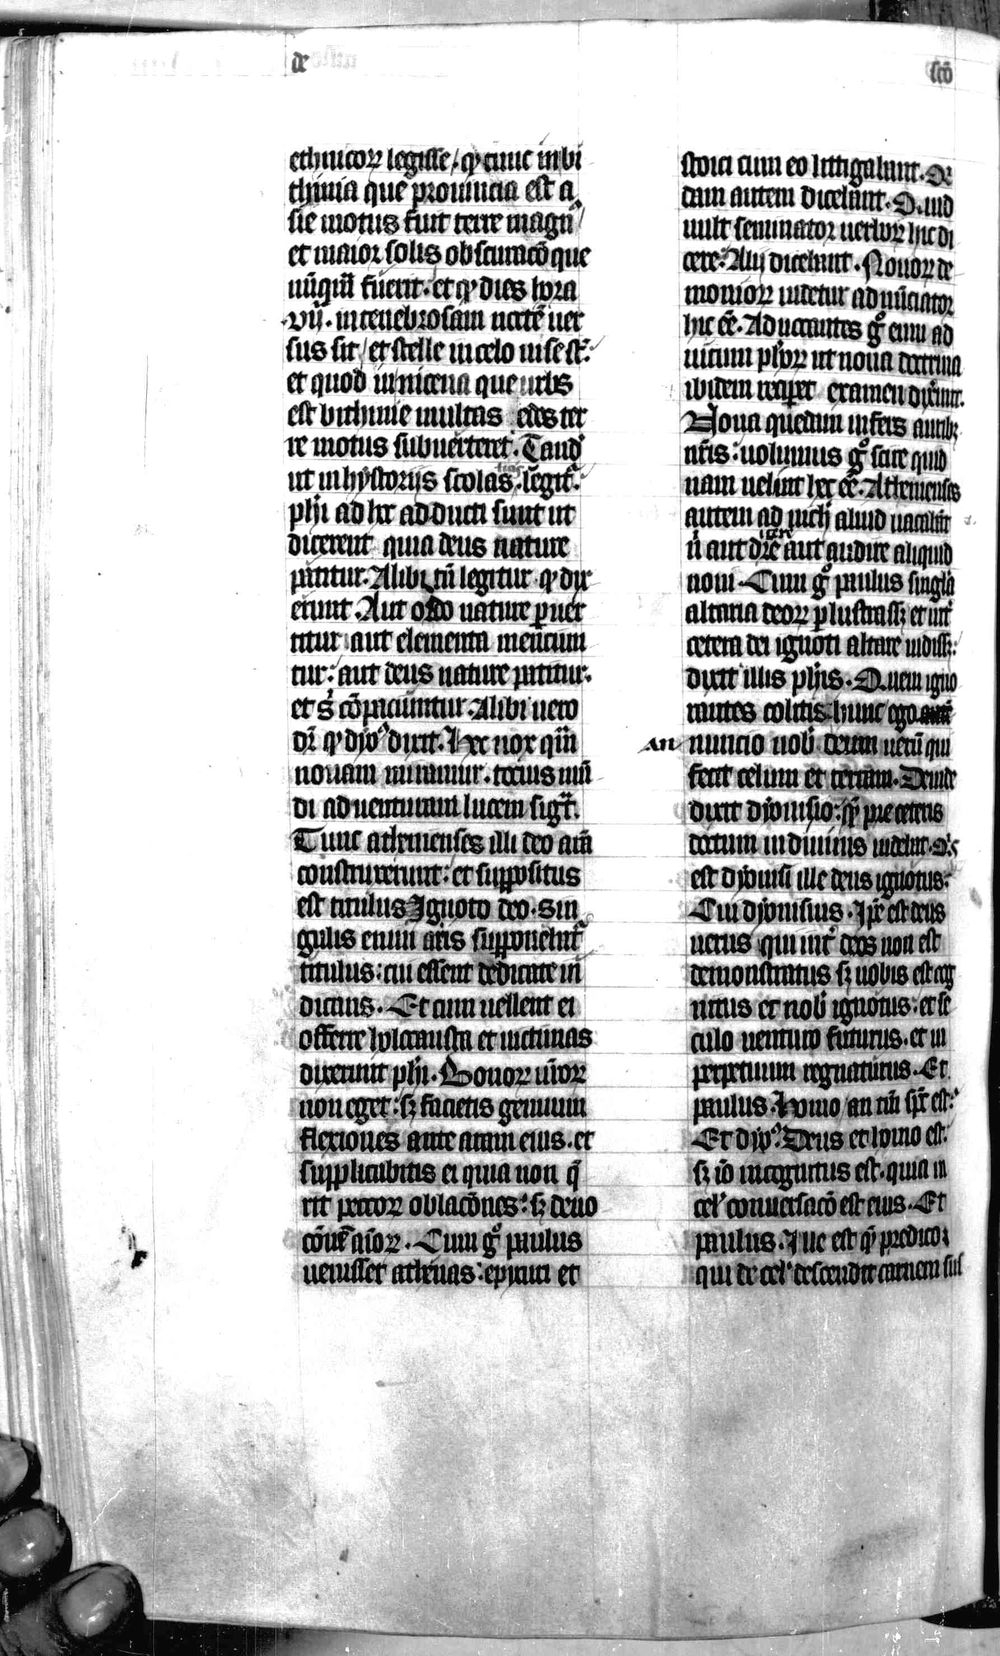 de
sco̅
ethnicoꝝ legisse / ꝙ tunc in bi
thinia que prouincia est a
sie motus fuit terre magn᷒ /
et maior solis obscuraco̅ que
nu̅qua̅ fuerit · et ꝙ dies hora
vij · in tenebrosam nocte̅ uer
sus sit / et stelle in celo uise st̅ :
et quod in nicena que urbs
est bithinie multas edes ter
re motus subuerteret · Tand᷒
ut in hystorijs scolas : legit᷒ ·
phi ad hec adducti sunt ut
dicerent quia deus nature
patitur · Alibi tn̅ legitur ꝙ dix
erunt · Aut ordo nature ꝑuer
titur aut elementa menciun
tur : aut deus nature patitur ·
et s͛ co̅paciuntur · Alibi uero
dr̅ ꝙ dyo᷒ dixit · Hec nox qua̅
nouam miramur · tocius mu̅
di aduenturam lucem sig̅t ·
Tunc athenienses illi deo ara̅
construxerunt : et suppositus
est titulus Ignoto deo · Sin
gulis enim aris supponebat᷒
titulus : cui essent dedicate in
dicans · Et cum uellent ei
offerre holocausta et uictimas
dixerunt phi · Bonoꝝ n̅roꝝ
non eget : sꝫ facietis genuum
flexiones ante aram eius · et
supplicabitis ei quia non q̅
rit pecoꝝ oblaco̅nes : sꝫ deuo
co̅ue̅ ai̅oꝝ · Cum g͛ paulus
uenisset athenas : epicuri et
stoici cum eo littigabant · Qi
dam autem dicebant · Quid
uult seminator uerboꝝ hic di
cere · Alij dicebant · Nouoꝝ de
monioꝝ uidetur adnu̅ciator
hic ee̅ · Adducentes g͛ eum ad
uicum ph̅oꝝ ut noua doctrina
ibidem reciperet examen dixerunt ·
Noua quedam infers auribꝫ
nr̅is : uolumus g͛ scire quid
nam uelint hec ee̅ · Athenienses
autem ad nichi̅ aliud uacabant
n̅ aut dr̅e aut audire aliquid
noui · Cum g͛ paulus singla̅
altaria deoꝝ perlustrassꝫ et int͛
cetera dei ignoti altare uidissꝫ :
dixit illis ph̅is · Quem igno
rantes colitis hunc ego
an nuncio uob̅ deum ueru̅ qui
fecit celum et terram · Deinde
dixit dyonisio : que̅ pre ceteris
doctum in diuinis uidebat · Q᷒s
est dyonisi ille deus ignotus ·
Cui dyonisius · Ipe̅ est deus
uerus qui int͛ deos non est
demonstratus sꝫ uobis est cog
nitus et nob̅ ignotus : et se
culo uenturo futurus · et in
perpetuum regnaturus · Et
paulus · Homo / an tn̅ spe̅ est :
Et dyo᷒ · Deus et homo est ·
sꝫ io̅ incognitus est · quia in
cel᷒ conuersaco̅ est eius · Et
paulus · Hic est que̅ predico :
qui de cel᷒ descendit carnem sus